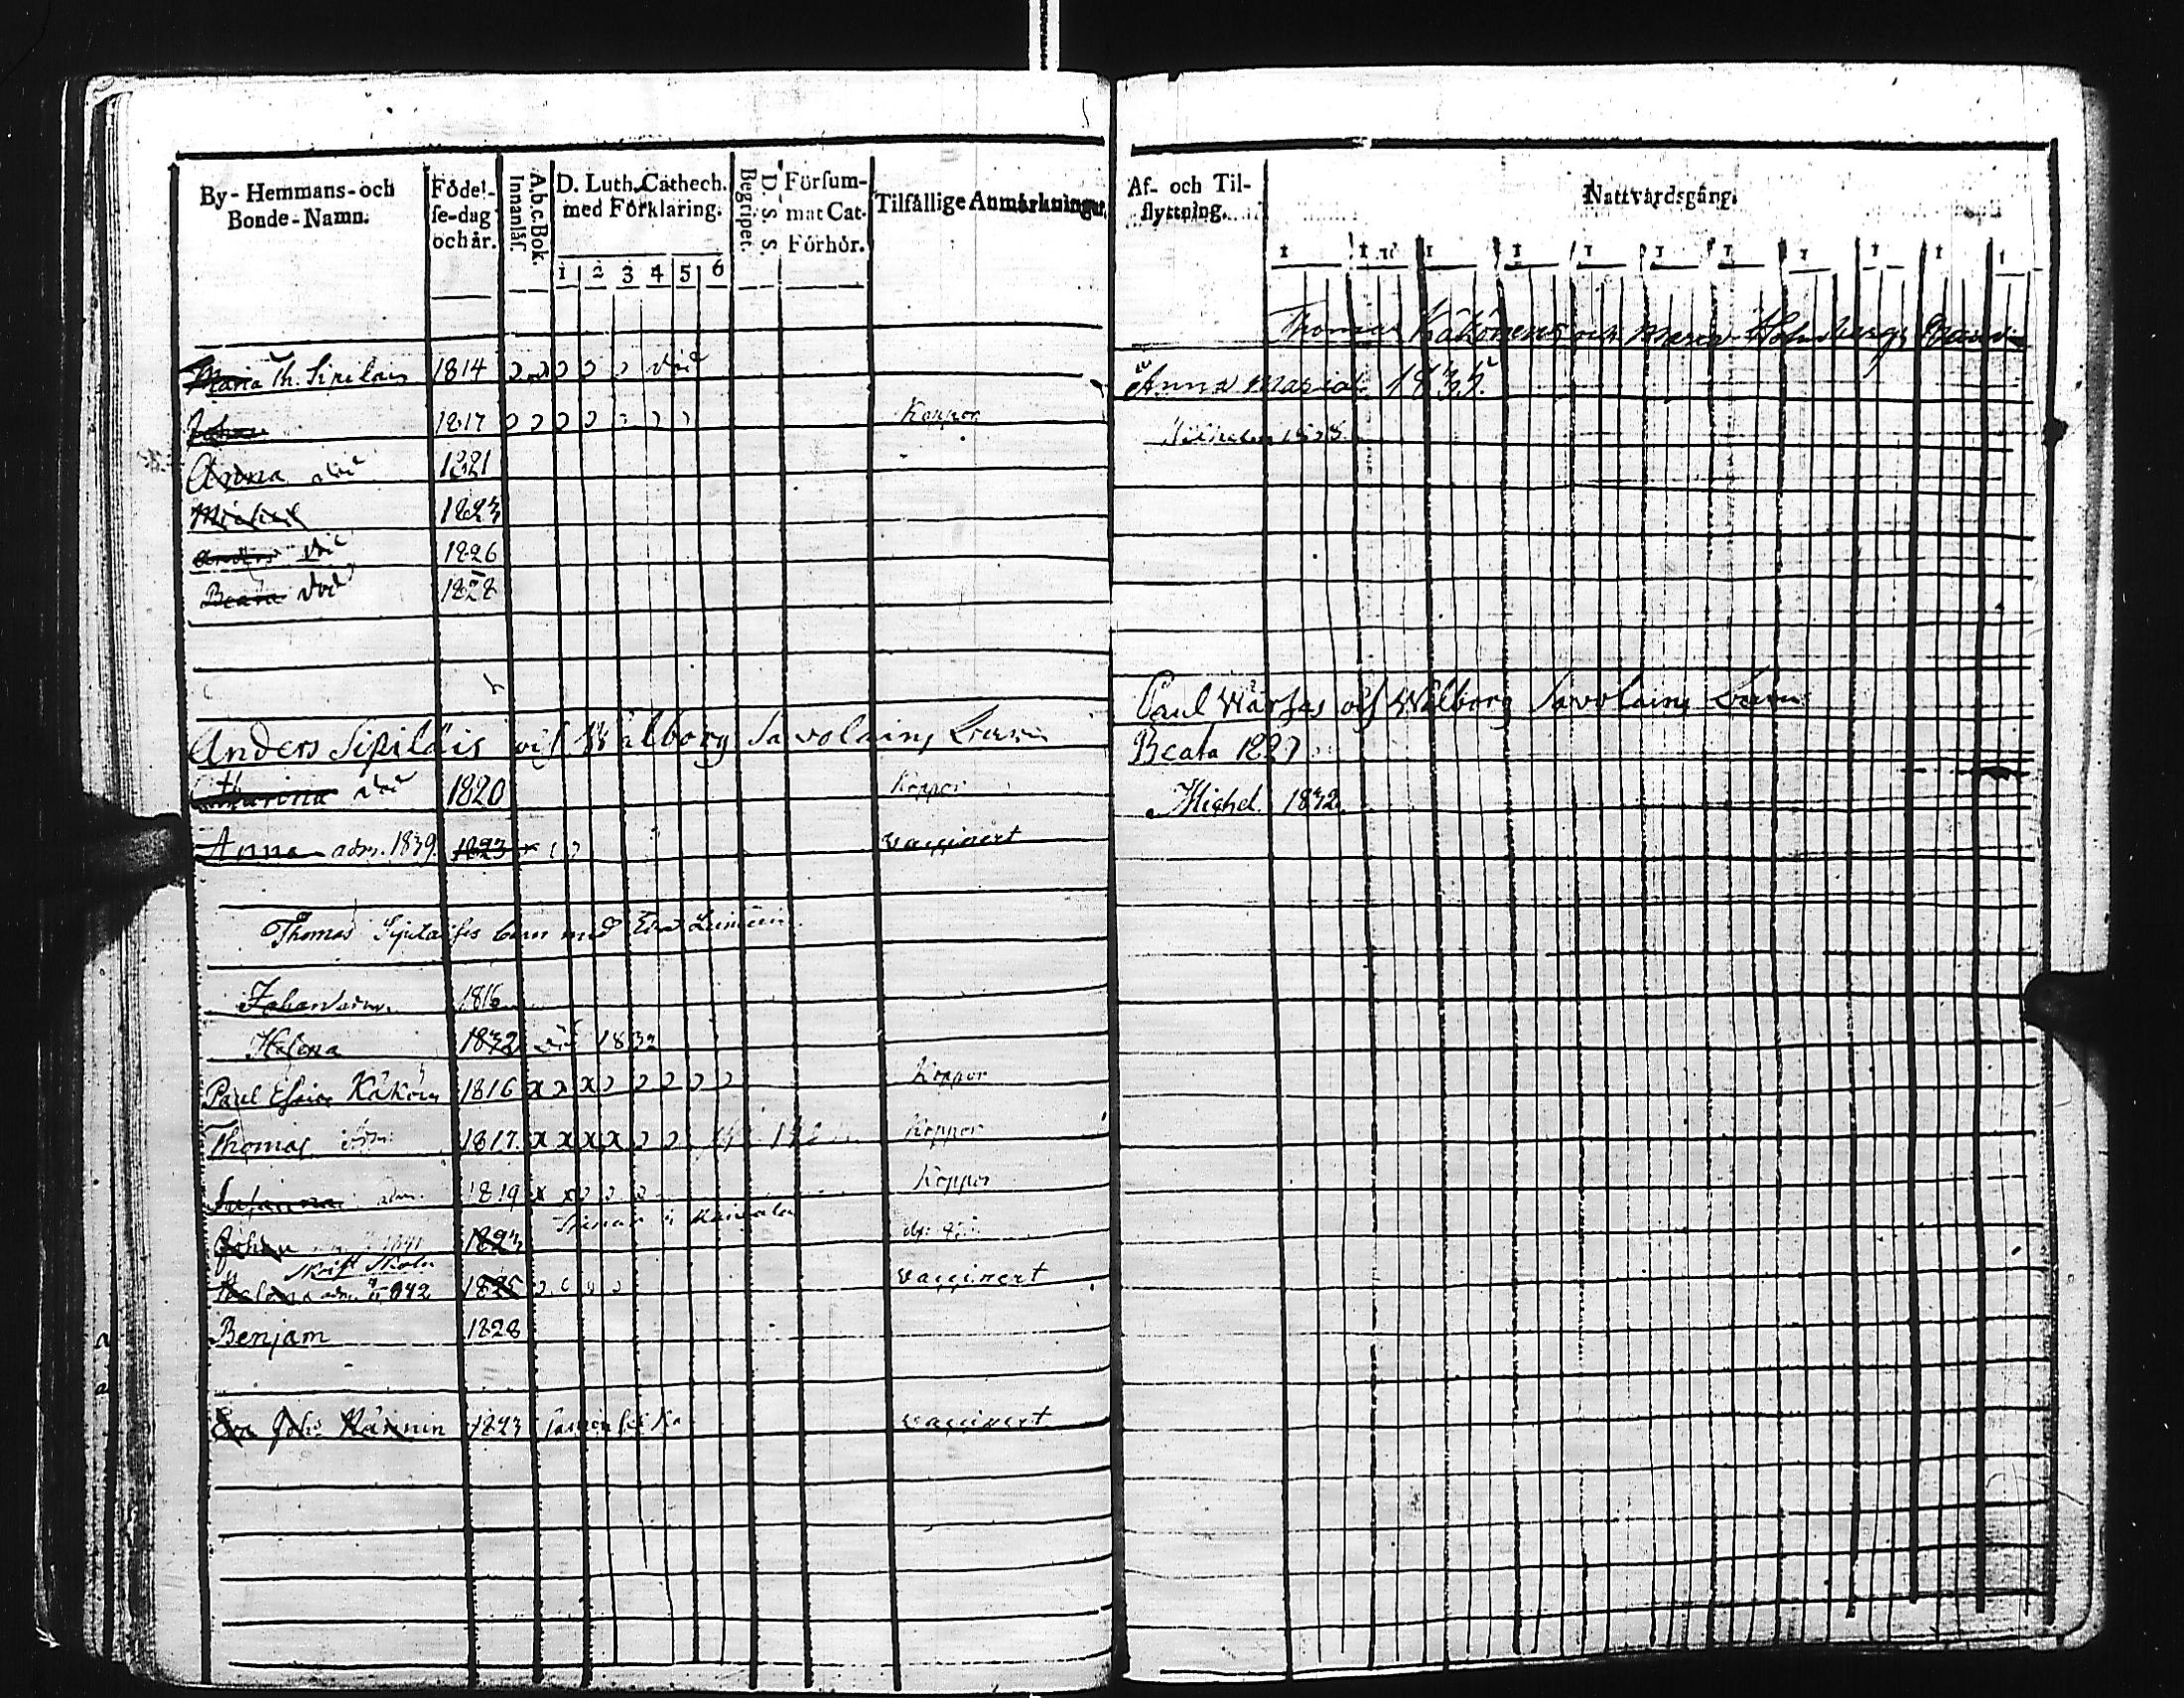 By-Hemmans-och Bonde-Namn.
Födel-se-dag och år.
A.b.c.Bok. Innanläs.
D. Luth. Cathech. med Förklaring.
1 2 3 4 5 6
D. S. S. Begripet.
Försum-mat Cat-Förhör.
Tilfällige Anmärkningar
Maria Th. Sipiläin 1814
Johan 1817 Koppor
Anna död 1821
Michel 1823
Anders död 1826
Beata död 1828
Anders Sipiläis och Wålborg Savolains barn
Catharina död 1820 Koppor
Anna adm. 1839 1823 vaccinert
Thomas Sipiläises barn med Eva
Johan adm. 1816
Helena 1832 död 1832
Paul Esaias Käköin 1816 Koppor
Thomas 1817 Koppor
Susanna adm. 1819 Koppor
Johan 1823
Skrift Skola
Helena adm. 1842 1825 vaccinert
Benjam 1828
Eva Joh. Kännin 1823 vaccinert
Af- och Til-flyttning.
Nattvardsgång.
Thomas Käköinens och Maria Holmbergs barn
Anna Maria 1835
Wilhelm
Paul och Wålborg Savolains barn
Beata 1827
Michel 1832